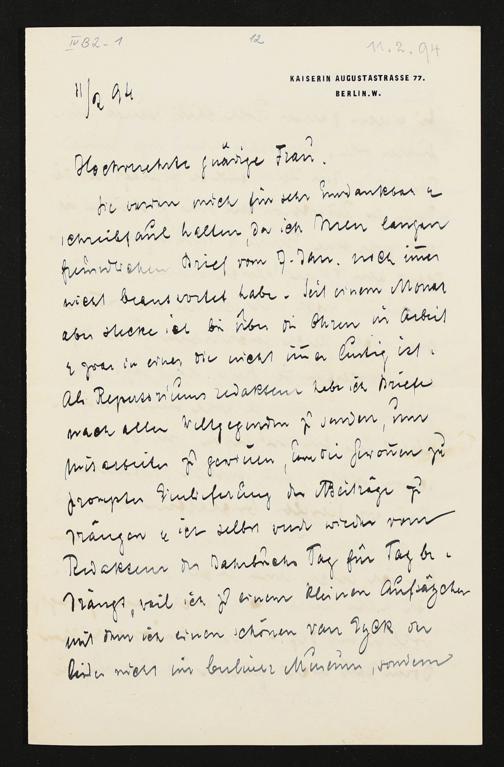 IV B2-1
12
11.2.94
KAISERIN AUGUSTASTRASSE 77.
BERLIN.W.
11/2 94
Hochverehrte gnädige Frau.
Sie werden mich für sehr undankbar u
schreibfaul halten, da ich Ihren langen
freundlichen Brief vom 7. Jan. noch im̅er
nicht beantwortet habe. Seit einem Monat
aber stecke ich bis über die Ohren in Arbeit
u zwar in einer, die nicht im̅er lustig ist.
Als Repertoriumsredakteur habe ich Briefe
nach allen Weltgegenden zu senden, um
Mitarbeiter zu gewin̅en, um die gewon̅enen zu
prompter Einlieferung der Beiträge zu
drängen u ich selbst werde wieder vom
Redakteur des Jahrbuchs Tag für Tag be-
drängt, weil ich zu einem kleinen Aufsätzchen
mit dem ich einen schönen van Eyck der
leider nicht im berliner Museum, sondern